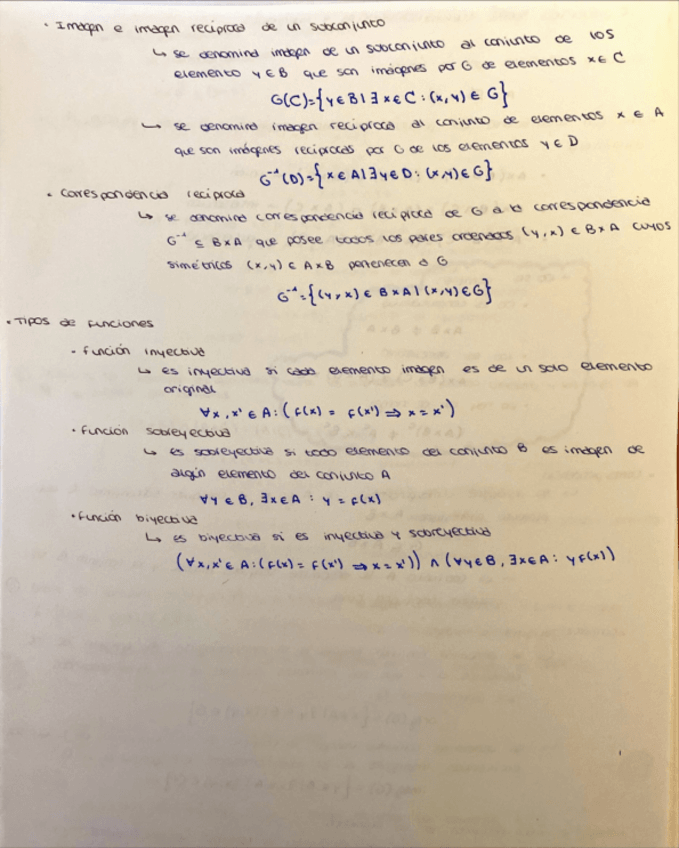 · Imagen e imagen recíproca de un subconjunto
↳ se denomina imagen de un subconjunto al conjunto de los
elemento y ∈ B que son imágenes por G de elementos x ∈ C
G(C)={y ∈ B | ∃ x ∈ C : (x, y) ∈ G}
↳ se denomina imagen recíproca al conjunto de elementos x ∈ A
que son imágenes recíprocas por G de los elementos y ∈ D
G⁻¹(D)={x ∈ A | ∃ y ∈ D : (x,y) ∈ G}
· Correspondencia recíproca
↳ se denomina correspondencia recíproca de G a la correspondencia
G⁻¹ ⊆ B×A que posee todos los pares ordenados (y,x) ∈ B×A cuyos
simétricos (x,y) ∈ A×B pertenecen a G
G⁻¹={(y,x) ∈ B×A | (x,y) ∈ G}
· Tipos de funciones
· Función inyectiva
↳ es inyectiva si cada elemento imagen es de un solo elemento
original
∀x,x' ∈ A: (f(x) = f(x') ⇒ x = x')
· Función sobreyectiva
↳ es sobreyectiva si todo elemento del conjunto B es imagen de
algún elemento del conjunto A
∀y ∈ B, ∃x ∈ A : y = f(x)
· Función biyectiva
↳ es biyectiva si es inyectiva y sobreyectiva
(∀x,x' ∈ A:(f(x) = f(x') ⇒ x = x')) ∧ (∀y ∈ B, ∃x ∈ A: y f(x))